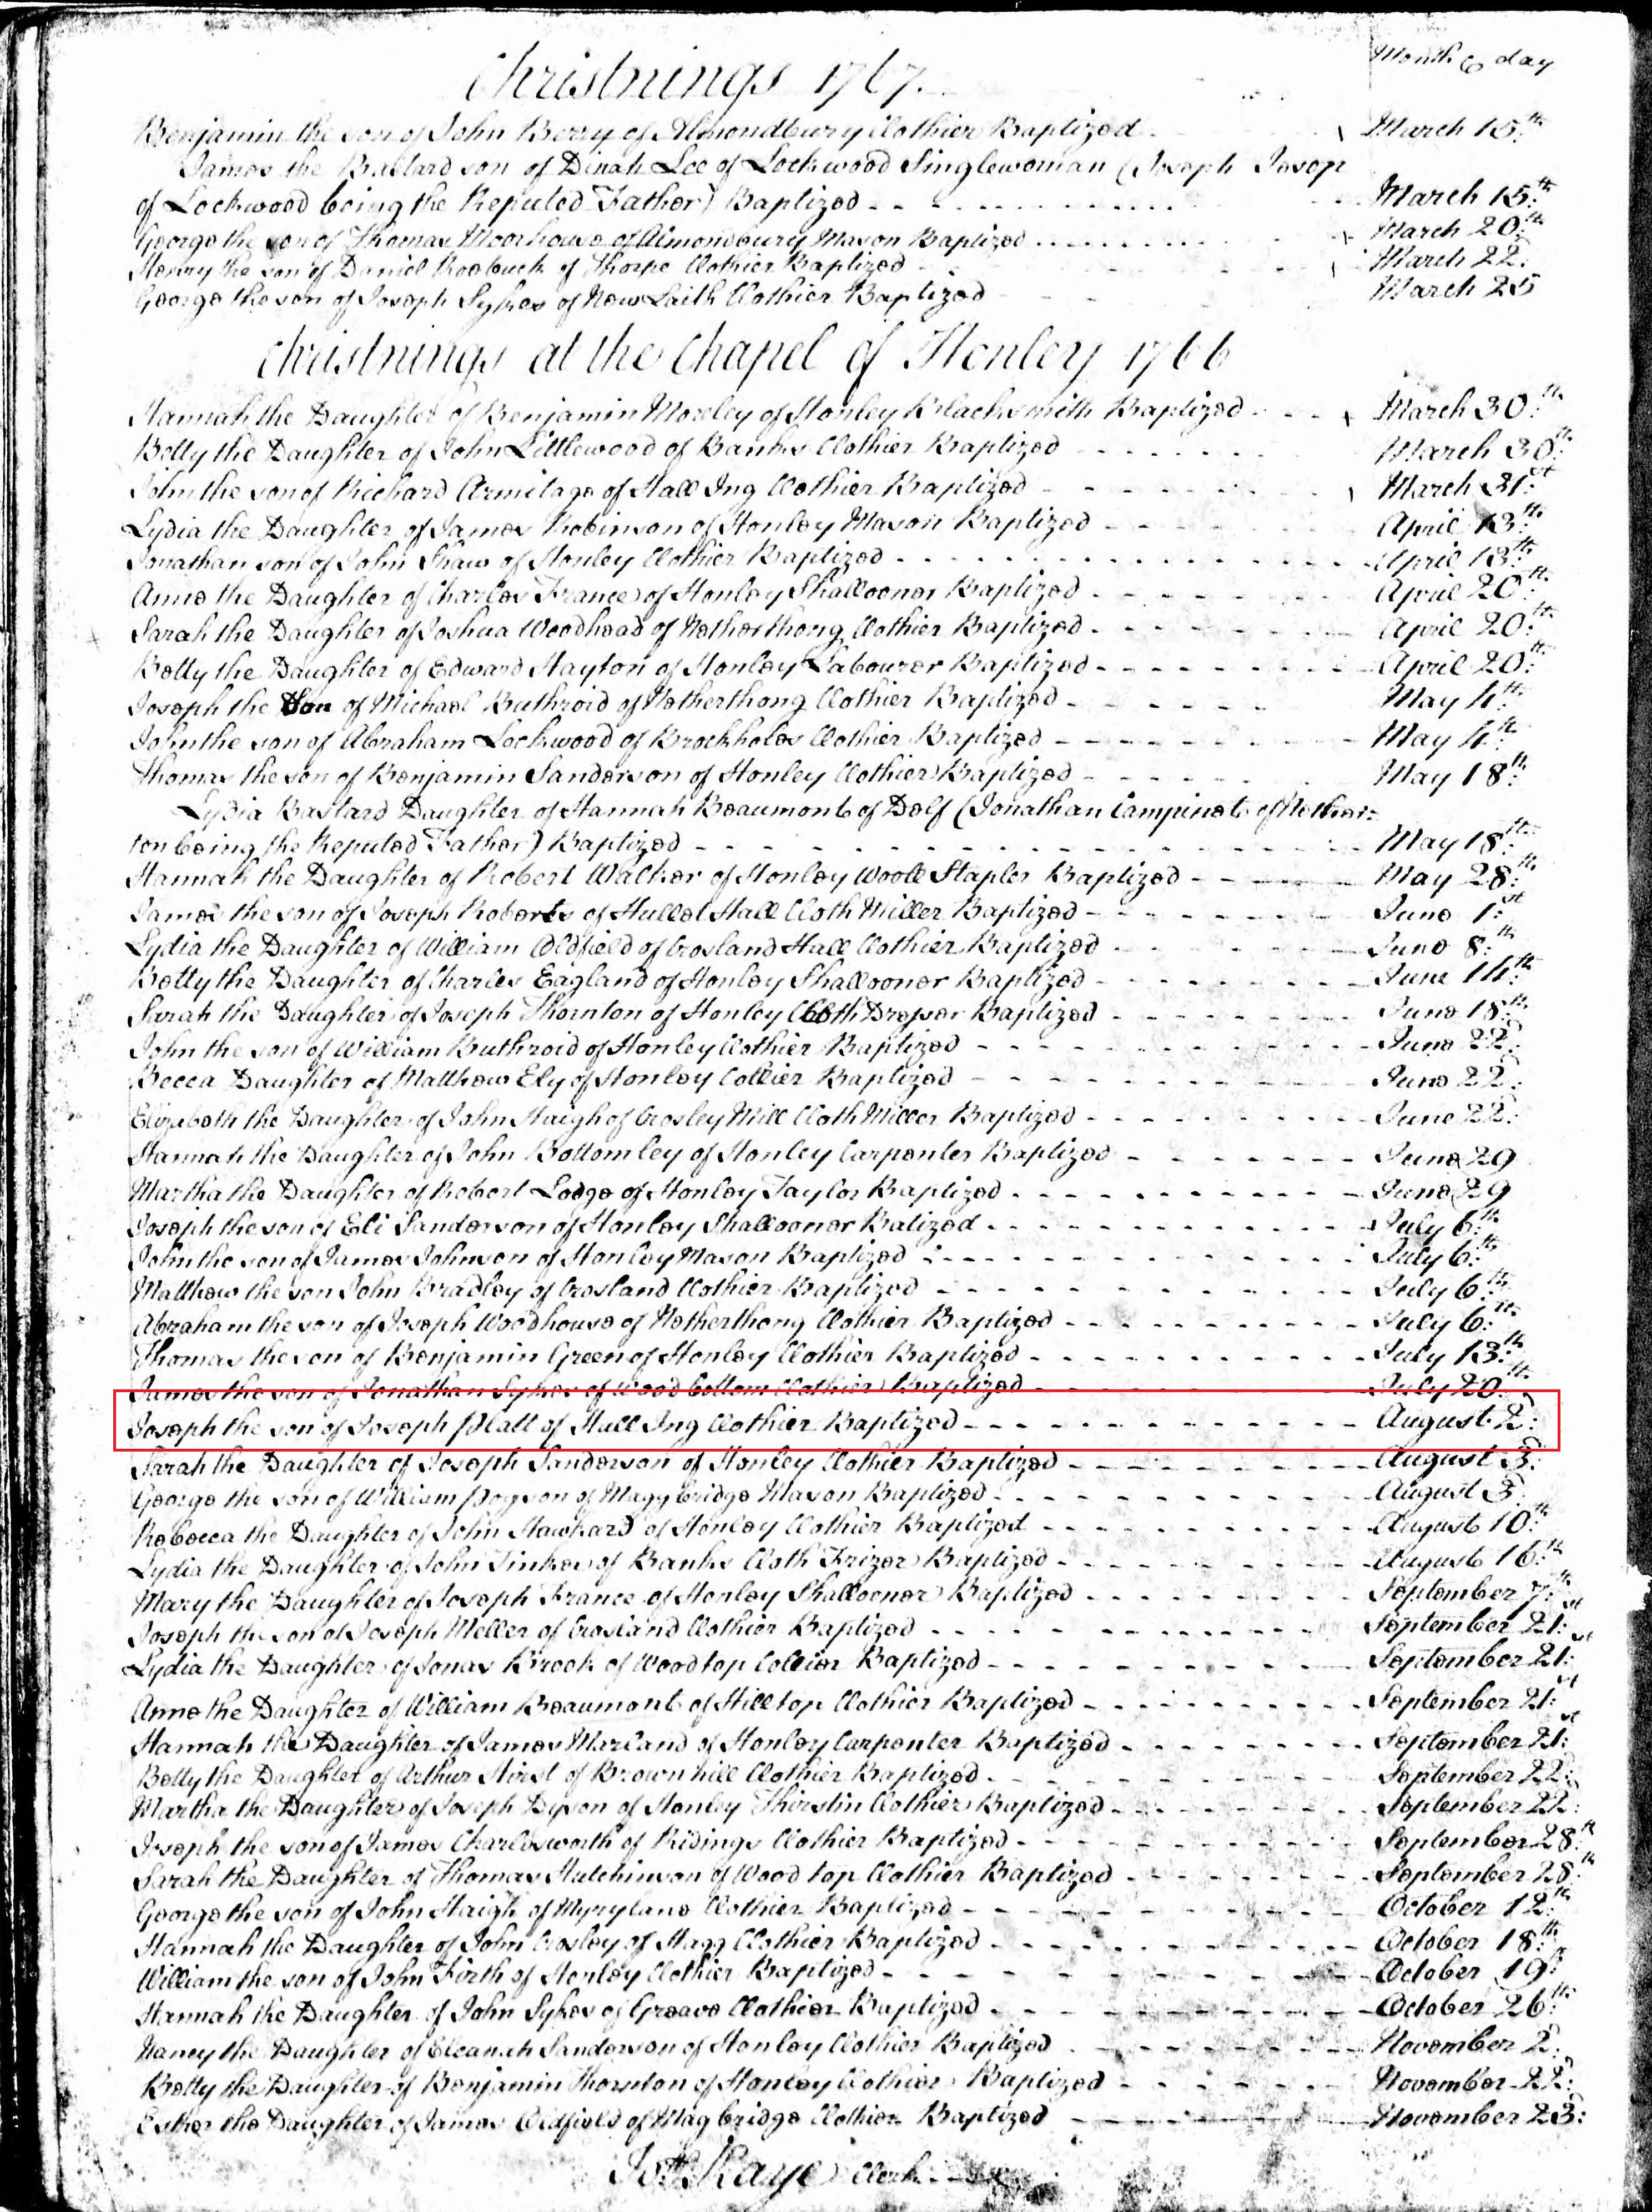 Christnings 1767.
Month & day
Benjamin the son of John Berry of Almondbury Clothier Baptized March 15th
James the Bastard son of Dinah Lee of Lockwood Singlewoman (Joseph
of Lockwood being the Reputed Father) Baptized March 15th
George the son of Thomas Moorhouse of Almondbury Mason Baptized March 20th
Henry the son of Daniel Roebuck of Thorpe Clothier Baptized March 22
George the son of Joseph Sykes of New Laith Clothier Baptized March 25
Christnings at the Chapel of Honley 1766
Hannah the Daughter of Benjamin Moseley of Honley Blacksmith Baptized March 30th
Betty the Daughter of John Littlewood of Banks Clothier Baptized March 30th
John the son of Richard Armitage of Hall Ing Clothier Baptized March 31st
Lydia the Daughter of James Robinson of Honley Mason Baptized April 13th
Jonathan son of John Shaw of Honley Clothier Baptized April 13th
Anne the Daughter of Charles France of Honley Shallooner Baptized April 20th
Sarah the Daughter of Joshua Woodhead of Netherthong Clothier Baptized April 20th
Betty the Daughter of Edward Hayton of Honley Labourer Baptized April 20th
Joseph the Son of Michael Buthroid of Netherthong Clothier Baptized May 4th
John the son of Abraham Lockwood of Brockholes Clothier Baptized May 4th
Thomas the son of Benjamin Sanderson of Honley Clothier Baptized May 18th
Lydia Bastard Daughter of Hannah Beaumont of Delf (Jonathan Campinot of Nether=
ton being the Reputed Father) Baptized May 18th
Hannah the Daughter of Robert Walker of Honley Wooll Stapler Baptized May 28th
James the son of Joseph Roberts of Hullet Hall Cloth Miller Baptized June 1st
Lydia the Daughter of William Oldfield of Crosland Hall Clothier Baptized June 8th
Betty the Daughter of Charles Eagland of Honley Shallooner Baptized June 14th
Sarah the Daughter of Joseph Thornton of Honley Cloth Dresser Baptized June 18th
John the son of William Buthroid of Honley Clothier Baptized June 22d
Becca Daughter of Matthew Ely of Honley Collier Baptized June 22d
Elizabeth the Daughter of John Haigh of Crosley Mill Cloth Miller Baptized June 22d
Hannah the Daughter of John Bottomley of Honley Carpenter Baptized June 29
Martha the Daughter of Robert Lodge of Honley Taylor Baptized June 29
Joseph the son of Eli Sanderson of Honley Shallooner Batized July 6th
John the son of James Johnson of Honley Mason Baptized July 6th
Matthew the son John Bradley of Crosland Clothier Baptized July 6th
Abraham the son of Joseph Woodhouse of Netherthong Clothier Baptized July 6th
Thomas the son of Benjamin Green of Honley Clothier Baptized July 13th
James the son of Jonathan Sykes of Wood bottom Clothier Baptized July 20th
Joseph the son of Joseph Platt of Hall Ing Clothier Baptized August 2d
Sarah the Daughter of Joseph Sanderson of Honley Clothier Baptized August 3d
George the son of William Pogson of Magg bridge Mason Baptized August 3d
Rebecca the Daughter of John Hawkard of Honley Clothier Baptized August 10th
Lydia the Daughter of John Tinker of Banks Cloth Frizer Baptized August 16th
Mary the Daughter of Joseph France of Honley Shallooner Baptized September 7th
Joseph the son of Joseph Meller of Crosland Clothier Baptized September 21st
Lydia the Daughter of Jonas Brook of Wood top Collier Baptized September 21st
Anne the Daughter of William Beaumont of Hilltop Clothier Baptized September 21st
Hannah the Daughter of James Marsland of Honley Carpenter Baptized September 21st
Betty the Daughter of Arthur Hirst of Brownhill Clothier Baptized September 22d
Martha the Daughter of Joseph Dyson of Honley Thirstin Clothier Baptized September 22
Joseph the son of James Charlesworth of Ridings Clothier Baptized September 28th
Sarah the Daughter of Thomas Hutchinson of Wood top Clothier Baptized September 28th
George the son of John Haigh of Myrylane Clothier Baptized October 12th
Hannah the Daughter of John Crosley of Hagg Clothier Baptized October 18th
William the son of John Firth of Honley Clothier Baptized October 19th
Hannah the Daughter of John Sykes of Greave Clothier Baptized October 26th
Nancy the Daughter of Eleanah Sanderson of Honley Clothier Baptized November 2d
Betty the Daughter of Benjamin Thornton of Honley Clothier Baptized November 22d
Esther the Daughter of James Oldfield of Mag bridge Clothier Baptized November 23:
Kaye Clerk